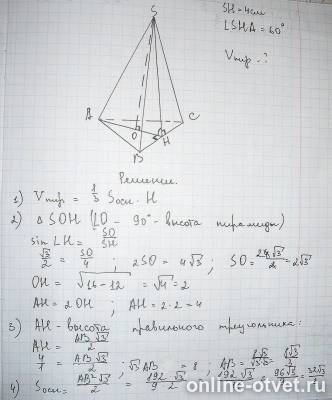 SH = 4см
∠SHA = 60°
Vпир - ?
S
A
C
O
H
B
Решение.
1) Vпир = 1/3 Sосн · H
2) Δ SOH (∠O - 90° - высота пирамиды)
sin ∠H = SO/SH
√3/2 = SO/4 ; 2SO = 4√3 ; SO = 4√3/2 = 2√3
OH = √16 - 12 = √4 = 2
AH = 2OH ; AH = 2·2 = 4
3) AH - высота правильного треугольника:
AH = AB√3/2
= AB√3/2 ; √3 AB = 8 ;
4) Sосн =
online-otvet.ru